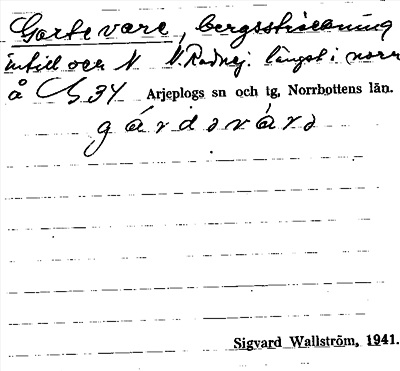 Gortevare, bergssträckning
intill och N N. Radnej. längst i norr
å C 34 Arjeplogs sn och tg, Norrbottens län.
gárdəvárə
Sigvard Wallström, 1941.